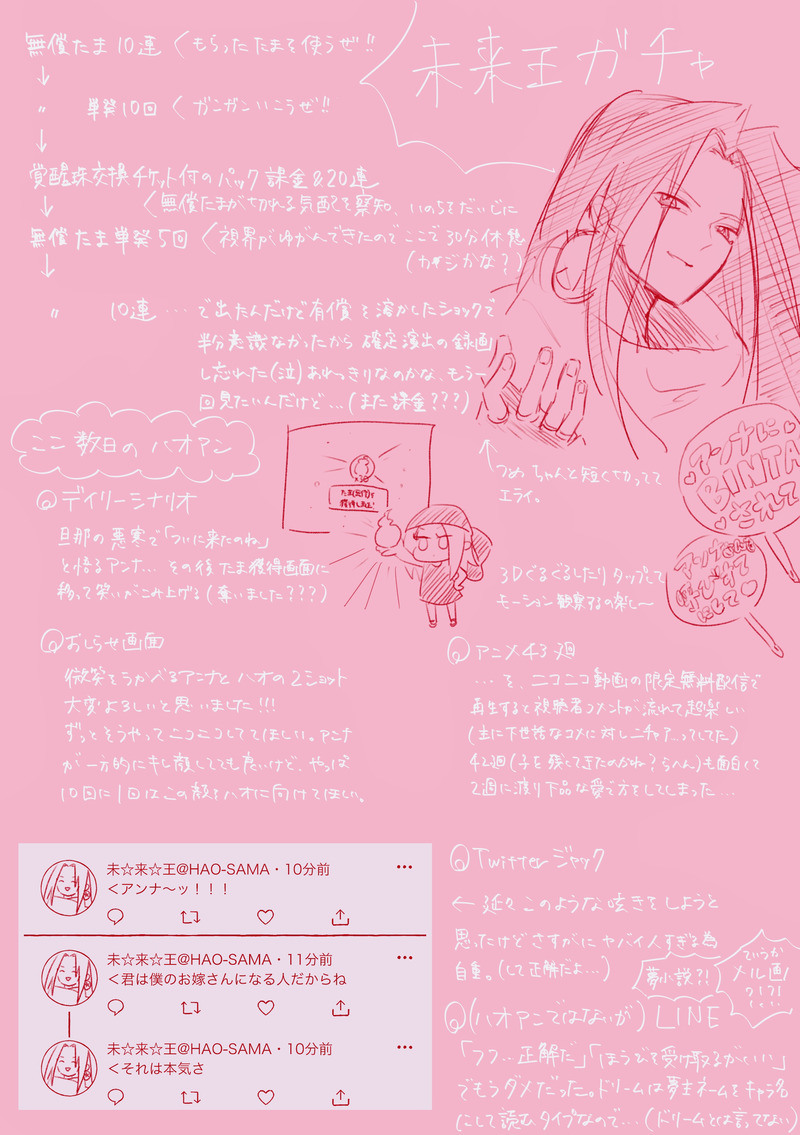 未来王ガチャ
無償たま10連 < もらったたまを使うぜ!!
↓
〃 単発10回 < ガンガンいこうぜ!!
↓
覚醒珠交換チケット付のパック課金&20連
↓ <無償たまがさかれる気配を察知、いのちをだいじに
無償たま単発5回 <視界がゆがんできたのでここで30分休憩
↓ (カイジかな?)
〃 10連…で出たんだけど有償を溶かしたショックで
半分意識なかったから確定演出の録画
し忘れた(泣)あれっきりなのかな、もう一
回見たいんだけど…(また課金???)
つめちゃんと短く切ってて
エライ。
アンナに
BINTA
されて
ここ数日のハオアン
デイリーシナリオ
旦那の悪寒で「ついに来たのね」
と悟るアンナ…その後たま獲得画面に
移って笑いがこみ上げる(奪いました???)
x30
3Dぐるぐるしたりタップして
モーション観察するの楽し〜
おしらせ画面
微笑をうかべるアンナとハオの2ショット
大変よろしいと思いました!!!
ずっとそうやってニコニコしててほしい。アンナ
が一方的にキレ顔してても良いけど、やっぱ
10回に1回はこの顔をハオに向けてほしい。
アニメ43廻
…を、ニコニコ動画の限定無料配信で
再生すると視聴者コメントが流れて超楽しい
(主に下世話なコメに対しニチャァ…ってしてた)
42廻(子を残してきたのかね?らへん)も面白くて
2週に渡り下品な愛で方をしてしまった…
未☆来☆王@HAO-SAMA・10分前
<アンナ〜ッ!!!
未☆来☆王@HAO-SAMA・11分前
<君は僕のお嫁さんになる人だからね
未☆来☆王@HAO-SAMA・10分前
<それは本気さ
Twitterジャック
← 延々このような呟きをしようと
思ったけどさすがにヤバイ人すぎる為
自重。(して正解だよ…)
夢小説?!
ていうか
メル画!
(ハオアンではないが)LINE
「フフ…正解だ」「ほうびを受け取るがいい」
でもうダメだった。ドリームは夢主ネームをキャラ名
にして読むタイプなので…(ドリームとは言ってない)